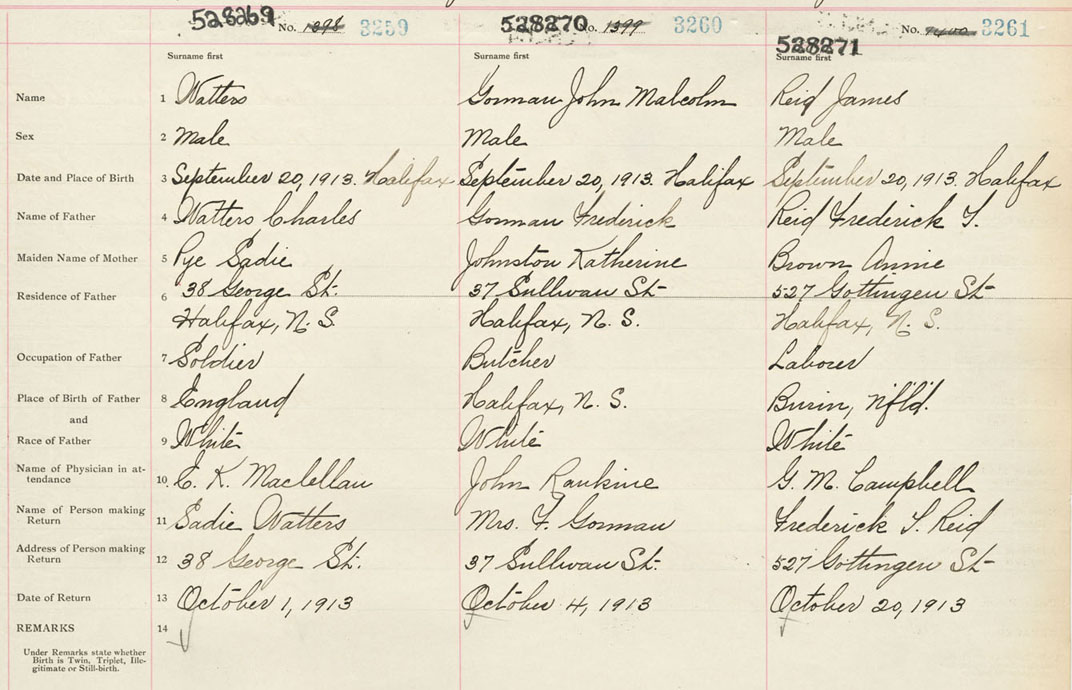 528269 No. 1398 3259 528270 No. 1399 3260 528271 No. 1400 3261
Surname first Surname first Surname first
Name 1 Watters Gorman John Malcolm Reid James
Sex 2 Male Male Male
Date and Place of Birth 3 September 20, 1913. Halifax September 20, 1913. Halifax September 20, 1913. Halifax
Name of Father 4 Watters Charles Gorman Frederick Reid Frederick T.
Maiden Name of Mother 5 Pye Sadie Johnston Katherine Brown Annie
Residence of Father 6 38 George St. 37 Sullivan St. 527 Gottingen St.
Halifax, N. S. Halifax, N. S. Halifax, N. S.
Occupation of Father 7 Soldier Butcher Laborer
Place of Birth of Father 8 England Halifax, N. S. Burin, Nfld.
and
Race of Father 9 White White White
Name of Physician in at-
tendance 10. E. K. Maclellan John Rankine G. M. Campbell
Name of Person making
Return 11 Sadie Watters Mrs. F. Gorman Frederick T. Reid
Address of Person making
Return 12 38 George St. 37 Sullivan St. 527 Gottingen St.
Date of Return 13 October 1, 1913 October 4, 1913 October 20, 1913
REMARKS 14
Under Remarks state whether
Birth is Twin, Triplet, Ille-
gitimate or Still-birth.